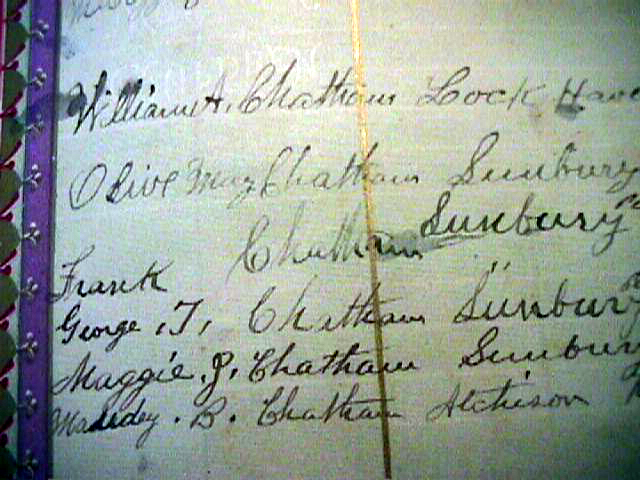 William A. Chatham Lock Have
Olive May Chatham Sunbury
Frank Chatham Sunbury
George. T. Chatham Sunbury
Maggie. J. Chatham Sunbury
B. Chatham Atchison